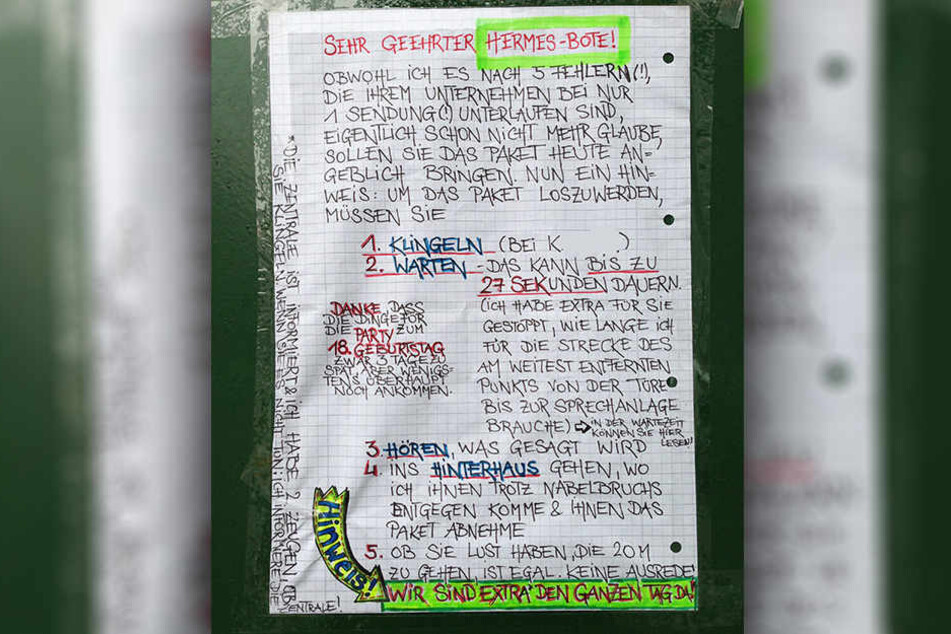 SEHR GEEHRTER HERMES-BOTE!
OBWOHL ICH ES NACH 5 FEHLERN(!),
DIE IHREM UNTERNEHMEN BEI NUR
1 SENDUNG(!) UNTERLAUFEN SIND,
EIGENTLICH SCHON NICHT MEHR GLAUBE,
SOLLEN SIE DAS PAKET HEUTE AN-
GEBLICH BRINGEN. NUN EIN HIN-
WEIS: UM DAS PAKET LOSZUWERDEN,
MÜSSEN SIE
1. KLINGELN (BEI K. )
2. WARTEN - DAS KANN BIS ZU
27 SEKUNDEN DAUERN.
(ICH HABE EXTRA FÜR SIE
GESTOPPT, WIE LANGE ICH
FÜR DIE STRECKE DES
AM WEITEST ENTFERNTEN
PUNKTS VON DER TÜRE
BIS ZUR SPRECHANLAGE
BRAUCHE) ⇨ IN DER WARTEZEIT
KÖNNEN SIE HIER
LESEN!
DANKE, DASS
DIE DINGE FÜR
DIE PARTY ZUM
18. GEBURTSTAG
ZWAR 3 TAGE ZU
SPÄT, ABER WENIGS-
TENS ÜBERHAUPT
NOCH ANKOMMEN.
3. HÖREN, WAS GESAGT WIRD
4. INS HINTERHAUS GEHEN, WO
ICH IHNEN TROTZ NABELBRUCHS
ENTGEGEN KOMME & IHNEN DAS
PAKET ABNEHME
5. OB SIE LUST HABEN, DIE 20M
ZU GEHEN IST EGAL. KEINE AUSREDE!
Hinweis!
WIR SIND EXTRA DEN GANZEN TAG DA!
*DIE ZENTRALE IST INFORMIERT & ICH HABE 2 ZEUGEN, OB
SIE KLINGELN. WENN SIE'S NICHT TUN: ICH INFORMIERE DIE
ZENTRALE!